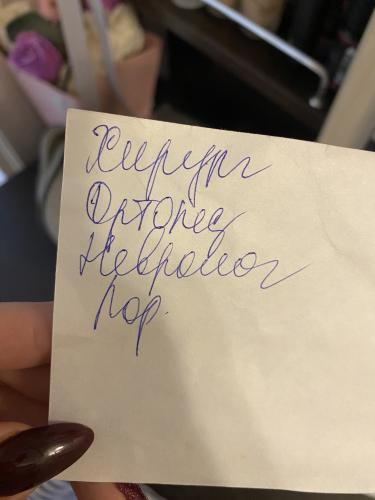 Хирург
Ортопед
Невролог
Лор.